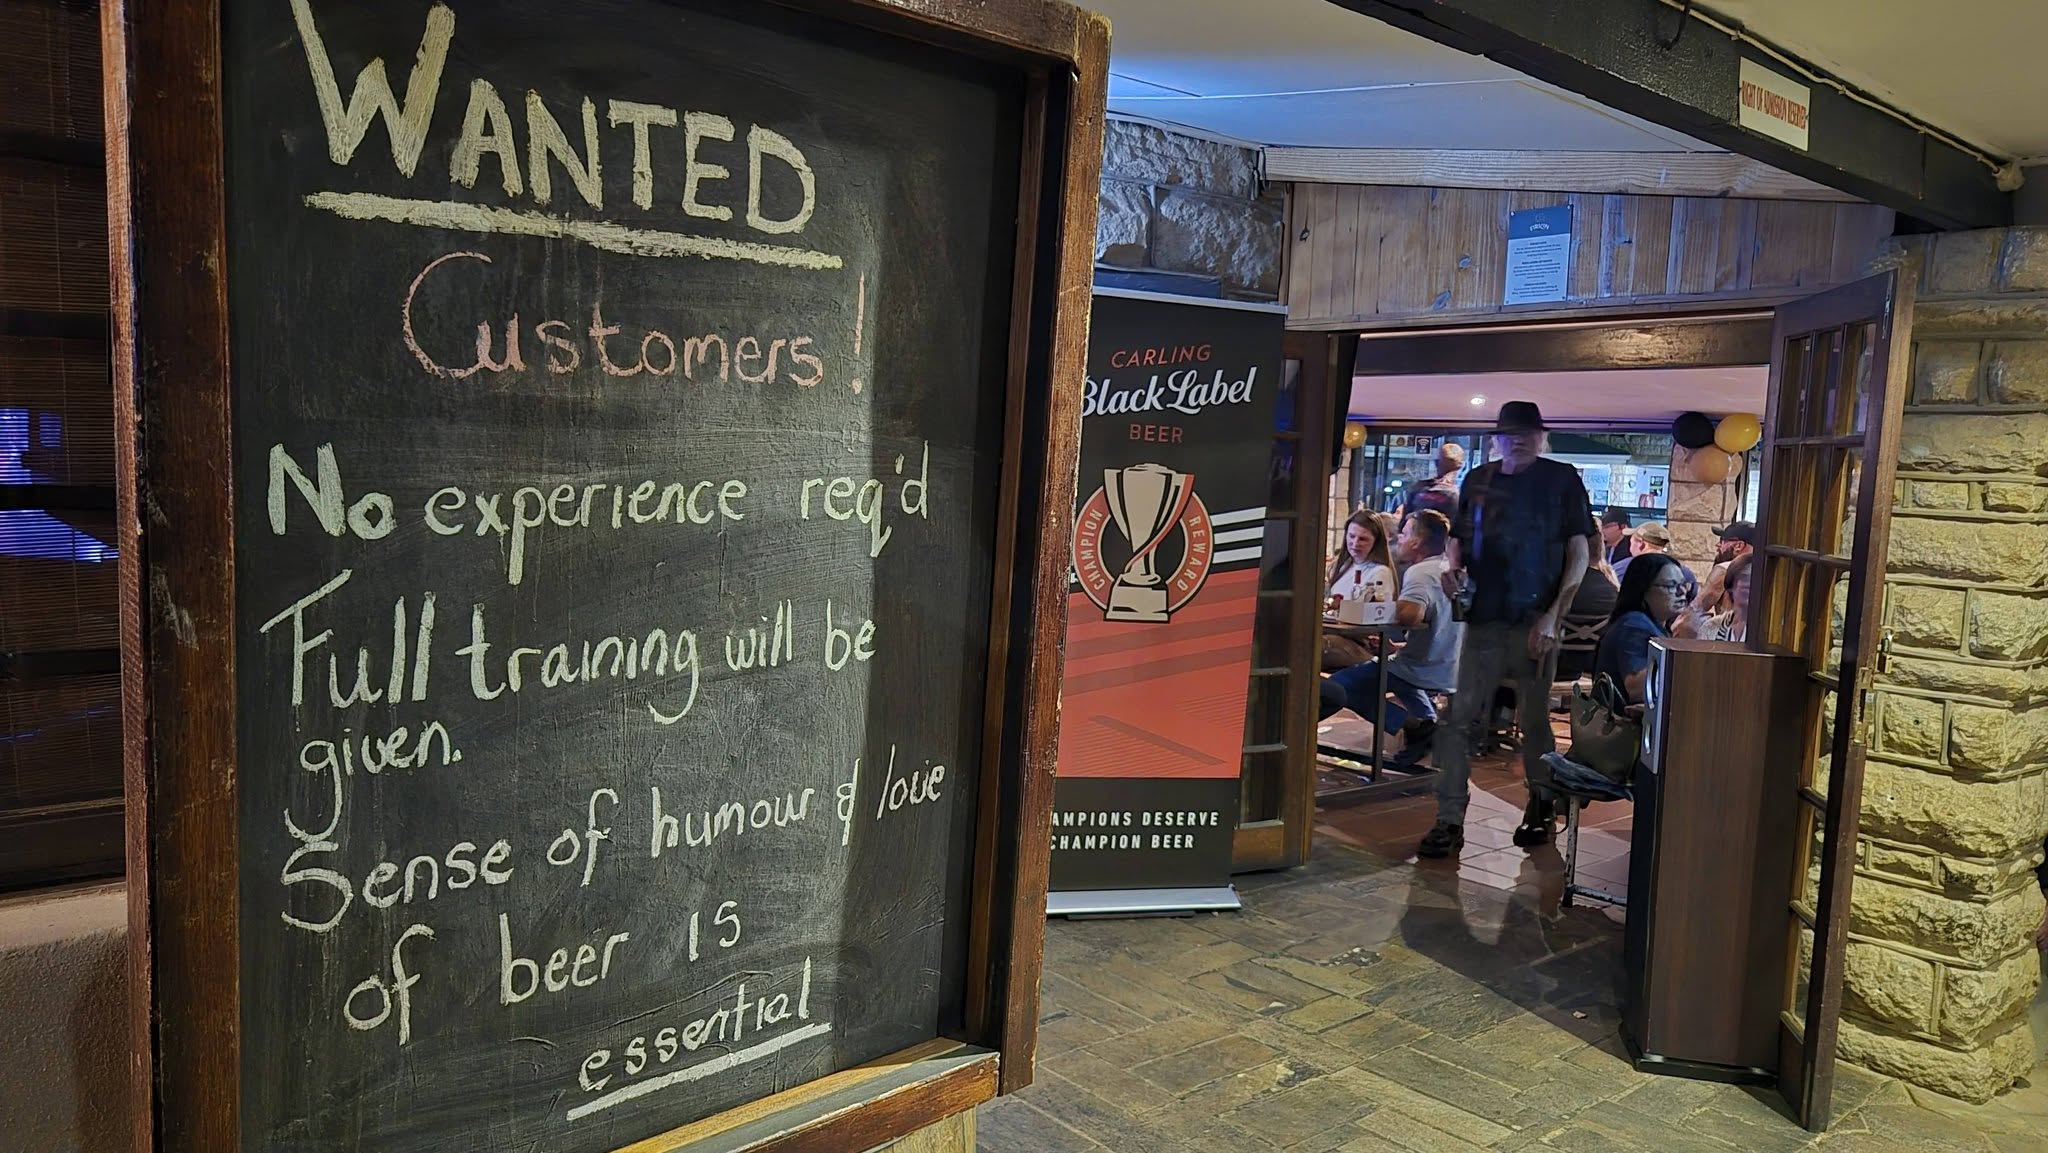 WANTED
Customers!
No experience req'd
Full training will be
given.
Sense of humour & love
of beer is
essential
CARLING
Black Label
BEER
CHAMPION REWARD
AMPIONS DESERVE
CHAMPION BEER
RIGHT OF ADMISSION RESERVED